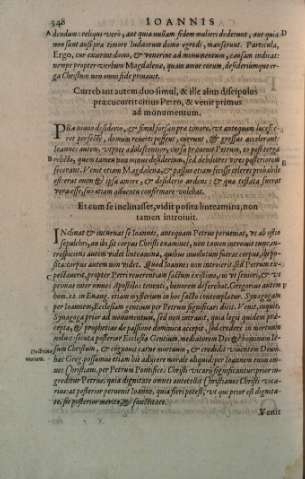 348 IOANNIS
dendum: reliqui verò, aut quia nullam fidem mulieri dederunt, aut quia
non sunt ausi præ timore Iudæorum domo egredi, manserunt. Particula,
Ergo, cur exeant domo, & venerint ad monumentum, causam indicat:
nempe propter verbum Magdalenæ, quia amor eorum, desideriumque er-
ga Christum non omni fide
Currebant autem duo simul, & ille alius discipulus
præcucurrit citius Petro, & venit primus
ad monumentum.
Præ nimio desiderio, & simul forsan præ timore, vt antequam lucesce-
ret perfectè, domum reuerti possent, currunt, & gressus accelerant:
Ioannes autem, vtpote adolescentior, cursu seniorem Petrum, in posteriora
quem tamen vno mouet desiderium, sed debiliores vires posteriorem
fecerant. Venit etiam Magdalena, & passus etiam
& ipsa amore, & desiderio ardens: & qua testata fuerat
vera esse, suo etiam aduentu confirmare volebat.
Et cum se inclinasset, vidit posita linteamina, non
tamen introiuit.
Inclinat & incuruat se Ioannes, antequam Petrus perueniat, vt ab ostio
sepulchri, an ibi sit corpus Christi examinet, non tamen introiuit tunc, in-
trospiciens autem videt linteamina, quibus inuolutum fuerat corpus, de-
posita: corpus autem non videt. Quod Ioannes non introierit sed Petrum ex-
pectauerit, propter Petri reuerentiam factum existimo, vt seniori, & vt
primas inter omnes Apostolos tenenti, honorem deferebat. Gregorius autem
hom. 22. in Euang. etiam mysterium in hoc facto contemplatur. Synagogam
per Ioannem, Ecclesiam gentium per Petrum significari dicit.
Synagoga prior ad monumentum, sed non intrauit, quia legis quidem præ-
cepta, & prophetias de passione dominica accepit, sed credere in mortuum
noluit: secuta posterior Ecclesia Gentium mediatorem Dei & hominum Ie-
sum Christum, & cognouit carne mortuum, & credidit viuentem Deum:
hæc Greg. possumus etiam his adijcere morale aliquid, per Ioannem enim om-
nes Christiani, per Petrum Pontifices Christi vicarij significantur: prior in-
greditur Petrus: quia dignitate omnes antecellit Christianos Christi vica-
rius: at posterior peruenit Ioanne, quia fieri potest, vt qui prior est dignita-
te, sit posterior merito, & sanctitate.
Doctrina
Venit